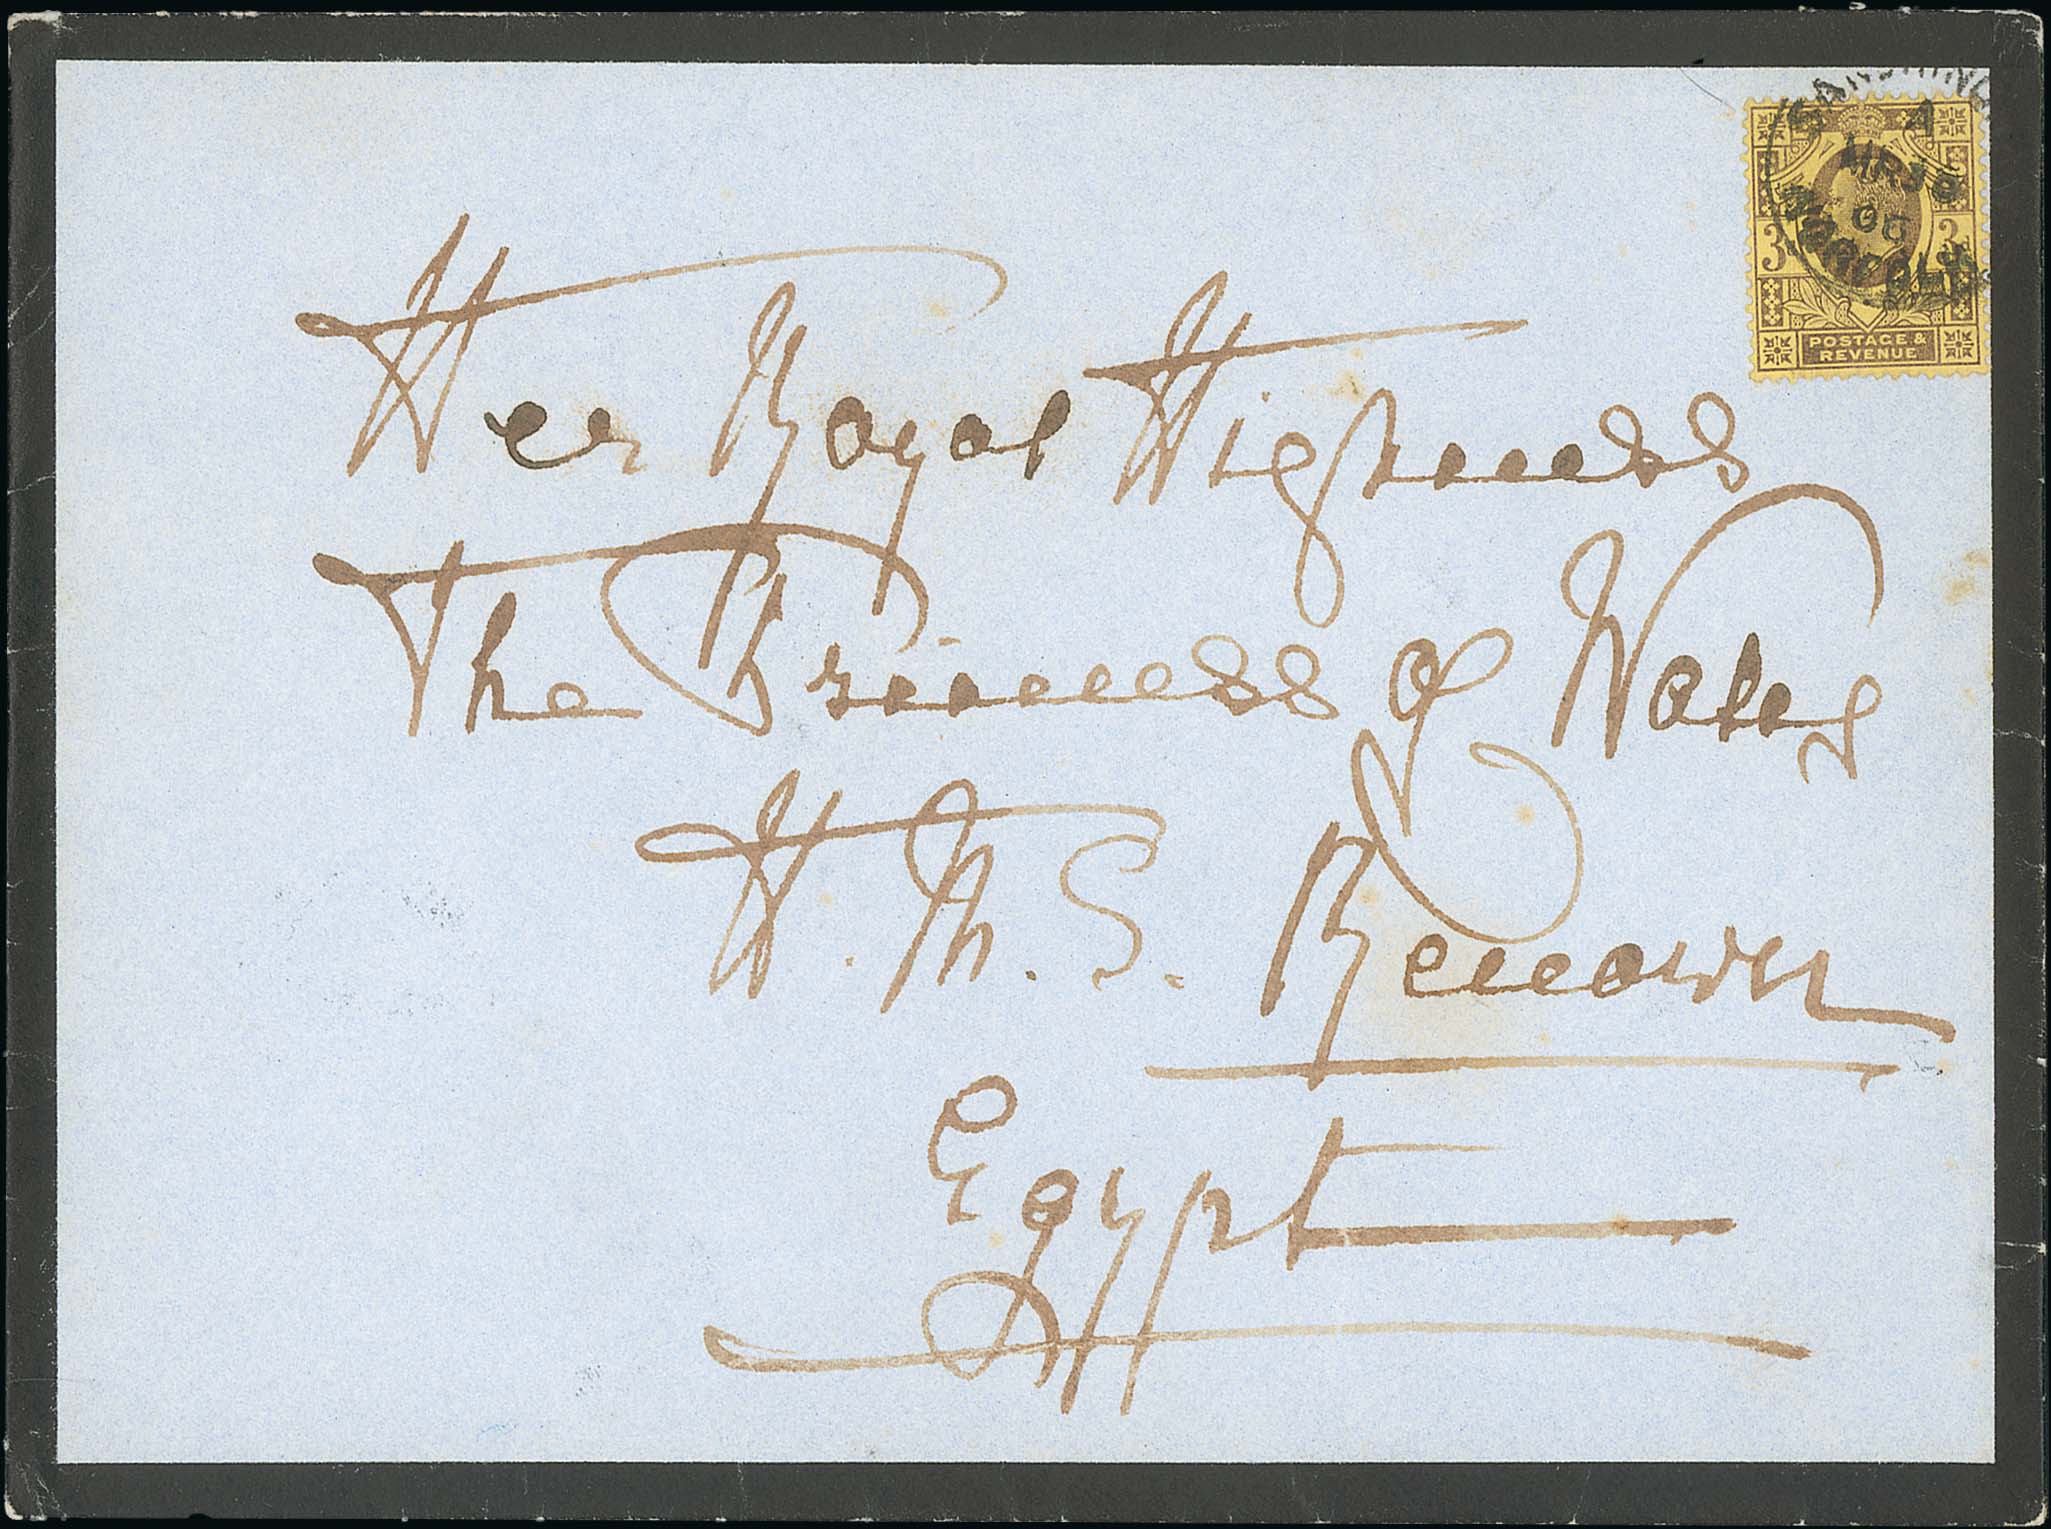 Her Royal Highness
The Princess of Wales
H.M.S. Renown
Egypt
A
MR 30
06
NORFOLK
3 3
POSTAGE &
REVENUE